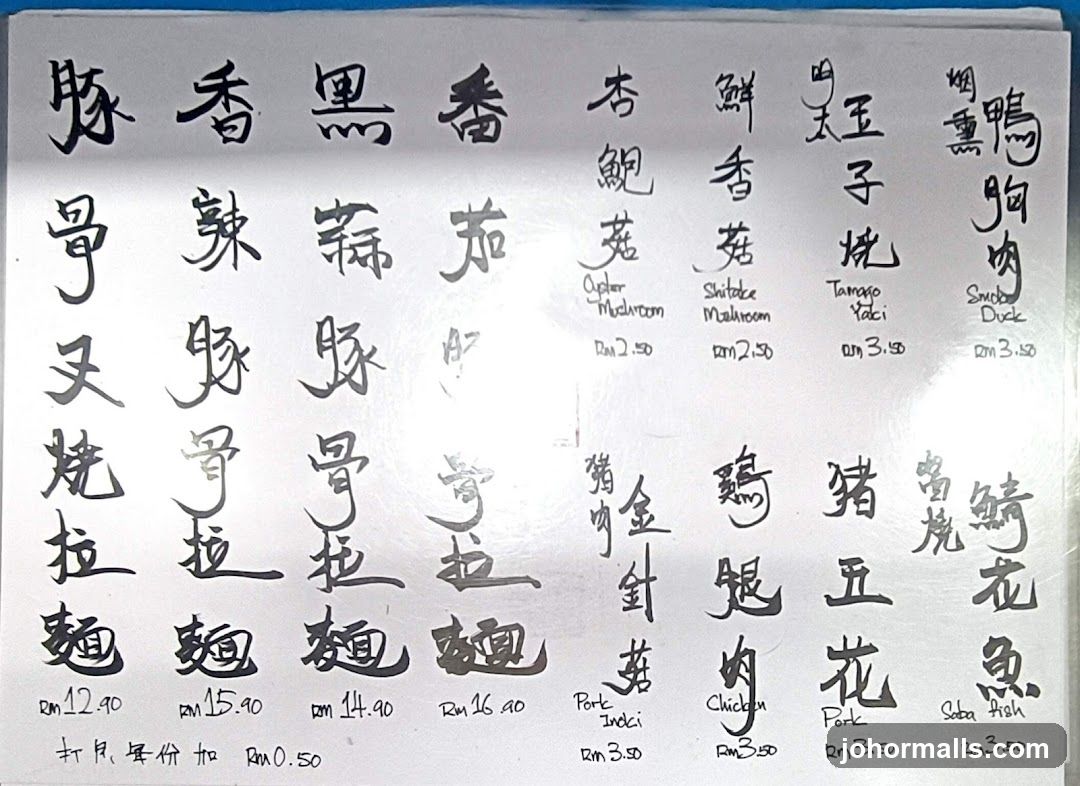 豚骨叉燒拉麵
RM12.90
香辣豚骨拉麵
RM15.90
黑蒜豚骨拉麵
RM14.90
番茄豚骨拉麵
RM16.90
打包每份加 RM0.50
杏鮑菇
Oyster
Mushroom
RM2.50
鮮香菇
Shitake
Mushroom
RM2.50
明太
玉子燒
Tamago
Yaki
RM3.50
烟熏
鴨胸肉
Smoke
Duck
RM3.50
豬肉
金針菇
Pork
Inoki
RM3.50
鷄腿肉
Chicken
RM3.50
豬五花
Pork
RM3.50
燒
鯖花魚
Saba fish
3.50
johormalls.com